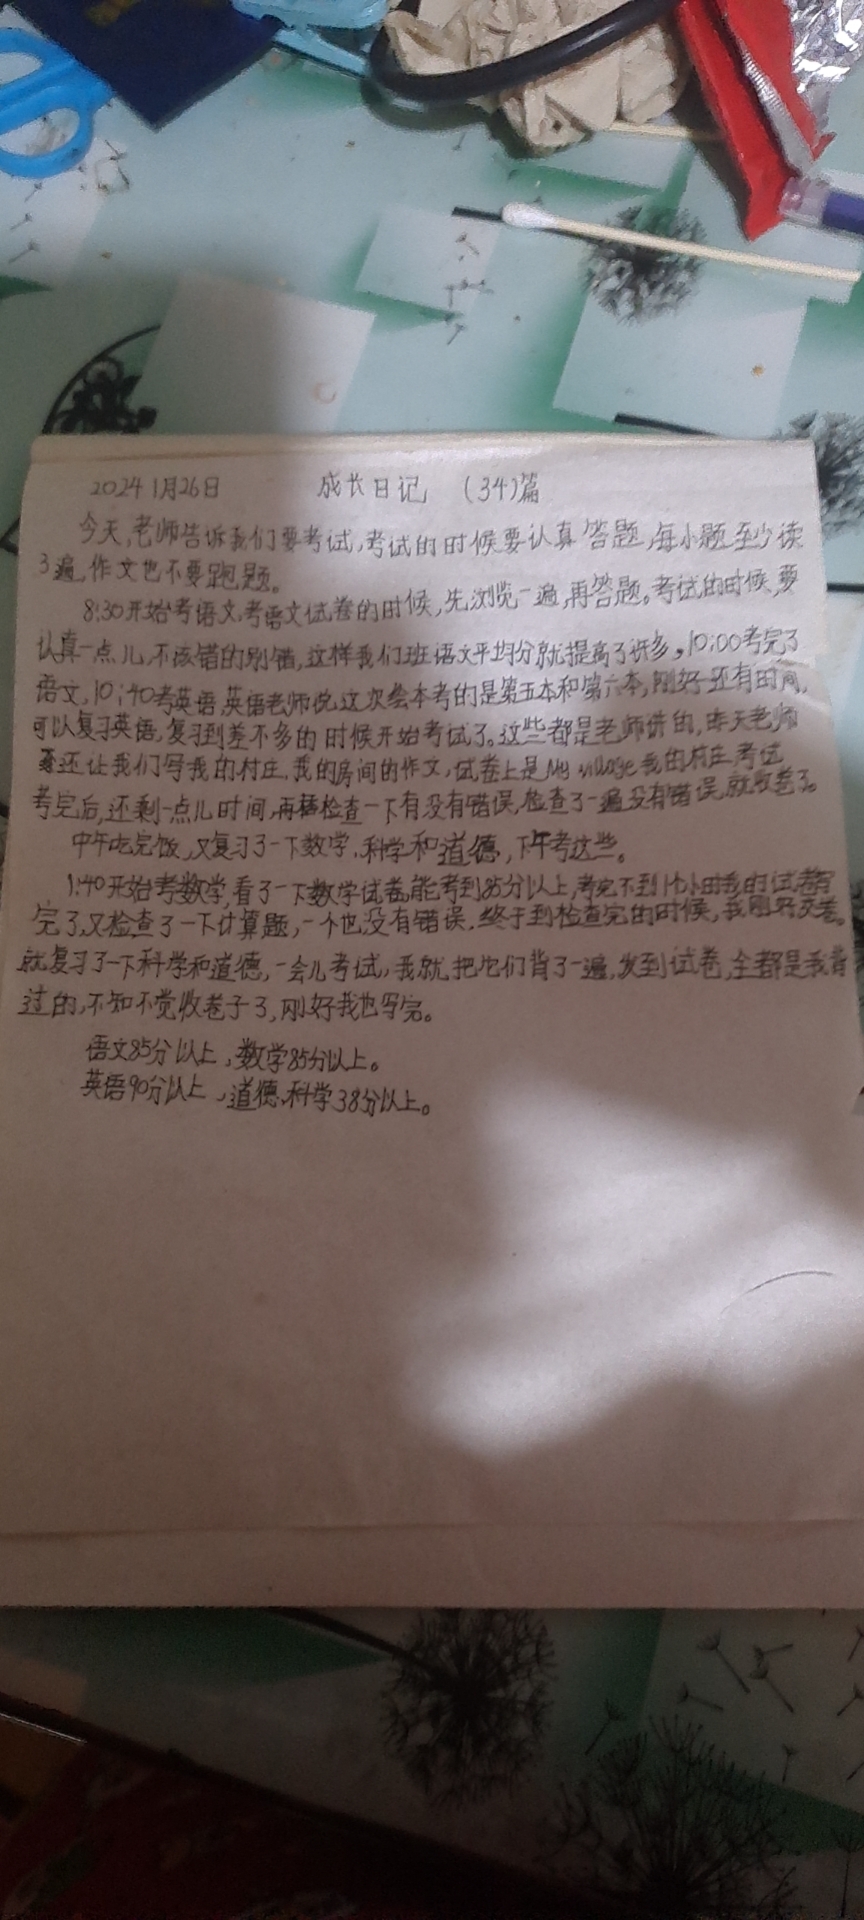 2024 1月26日 成长日记 (34)篇
今天,老师告诉我们要考试,考试的时候要认真答题,每小题至少读
3遍,作文也不要跑题。
8:30开始考语文,考语文试卷的时候,先浏览一遍,再答题。考试的时候,要
认真一点儿,不该错的别错,这样我们班语文平均分就提高了许多,10:00考完了
语文,10:40考英语,英语老师说,这次绘本考的是第五本和第六本,刚好还有时间,
可以复习英语,复习到差不多的时候开始考试了。这些都是老师讲的,昨天老师
还让我们写我的村庄,我的房间的作文,试卷上是My village我的村庄,考试
考完后,还剩一点儿时间,再检查一下有没有错误,检查了一遍没有错误,就收卷了。
中午吃完饭,又复习了一下数学,科学和道德,下午考这些。
1:40开始考数学,看了一下数学试卷,能考到85分以上,考完不到1个小时我的试卷写
完了,又检查了一下计算题,一个也没有错误,终于到检查完的时候,我刚好交卷。
就复习了一下科学和道德,一会儿考试,我就把它们背了一遍,发到试卷,全都是我背
过的,不知不觉收卷子了,刚好我也写完。
语文85分以上,数学85分以上。
英语90分以上,道德,科学38分以上。